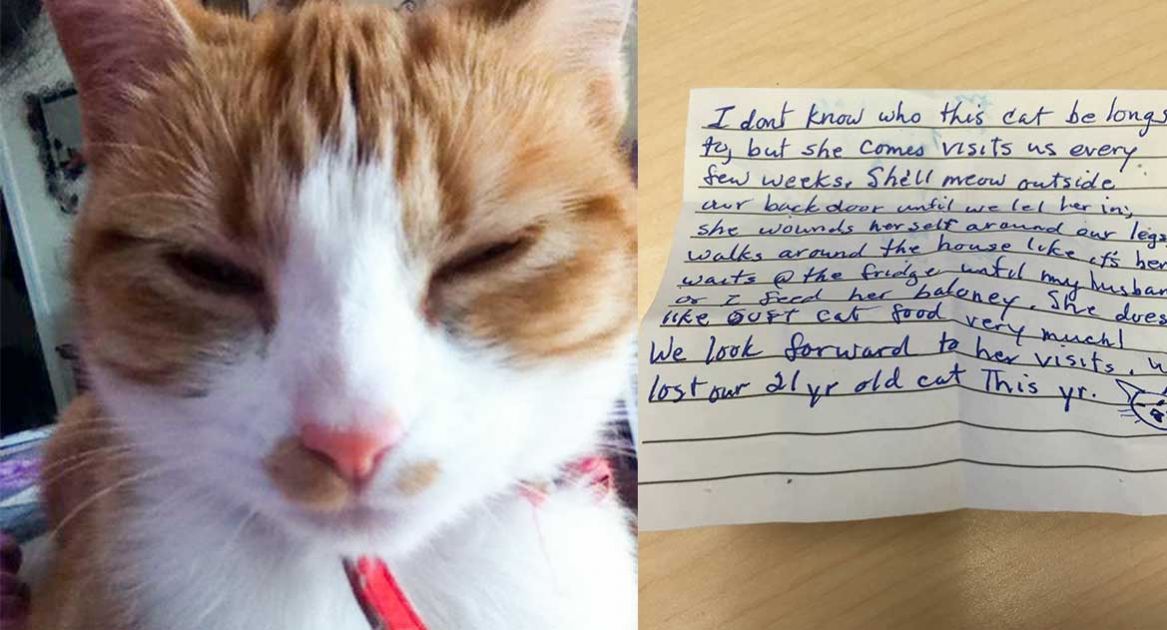 I dont know who this cat belongs
to, but she comes visits us every
few weeks. She'll meow outside
our back door until we let her in;
she wounds herself around our legs
walks around the house like it's her
waits @ the fridge until my husban
or I feed her baloney. She does
like cat food very much!
We look forward to her visits. w
lost our 21 yr old cat This yr.